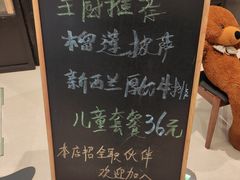 主厨推荐
榴莲披萨
新西兰原切牛排
儿童套餐36元
本店招全职伙伴
欢迎加入